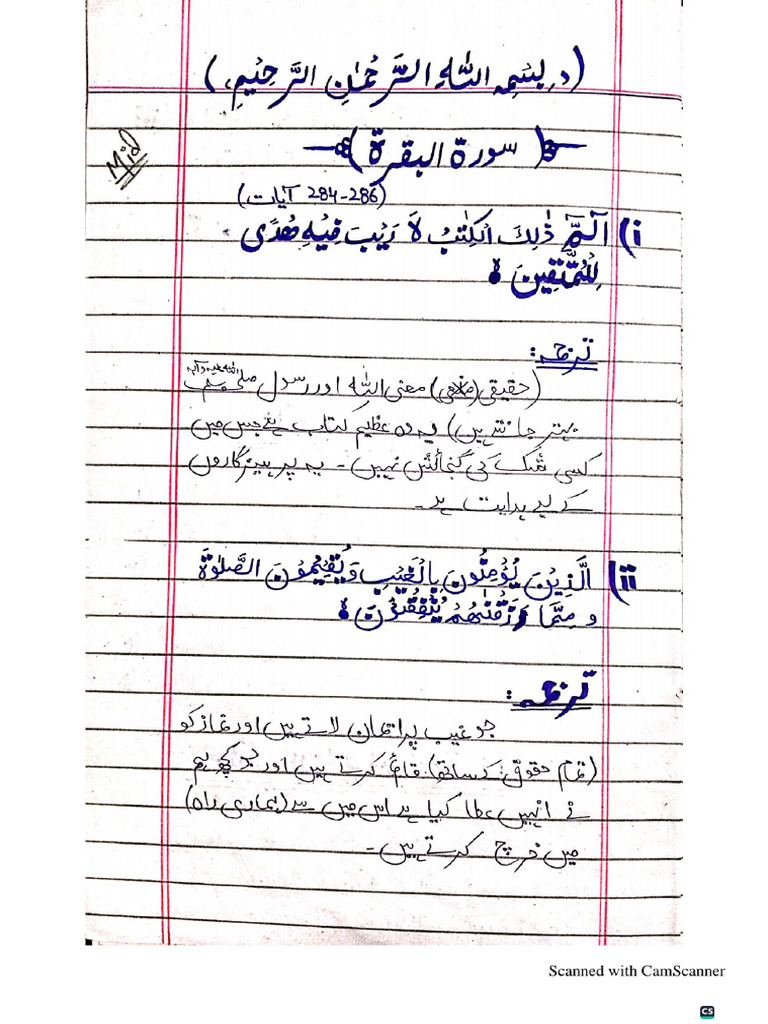 (بِسْمِ اللّٰهِ الرَّحْمٰنِ الرَّحِيْمِ)
Mid
(سورة البقرة)
(284-286 آیات)
i) الٓمّٓ ذٰلِكَ الْكِتٰبُ لَا رَيْبَ فِيْهِ هُدًى
لِّلْمُتَّقِيْنَ ہ
ترجمہ:
(حقیقی معنی اللّٰہ اور رسول صلی اللہ علیہ وآلہ وسلم
بہتر جانتے ہیں) یہ وہ عظیم کتاب ہے جس میں
کسی شک کی گنجائش نہیں۔ یہ پرہیزگاروں
کے لیے ہدایت ہے۔
ii) الَّذِيْنَ يُؤْمِنُوْنَ بِالْغَيْبِ وَيُقِيْمُوْنَ الصَّلٰوةَ
و مِمَّا رَزَقْنٰهُمْ يُنْفِقُوْنَ ہ
ترجمہ:
جو غیب پر ایمان لاتے ہیں اور نماز کو
(تمام حقوق کے ساتھ) قائم کرتے ہیں اور جو کچھ ہم
نے انہیں عطا کیا ہے اس میں سے (ہماری راہ)
میں خرچ کرتے ہیں۔
Scanned with CamScanner
CS